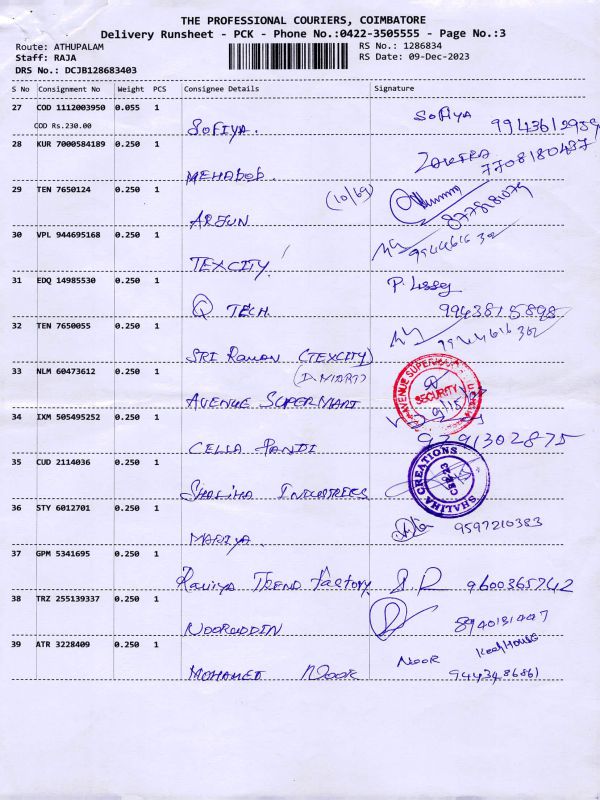 THE PROFESSIONAL COURIERS, COIMBATORE
Delivery Runsheet - PCK - Phone No.:0422-3505555 - Page No.:3
Route: ATHUPALAM RS No.: 1286834
Staff: RAJA RS Date: 09-Dec-2023
DRS No.: DCJB128683403
S No Consignment No Weight PCS Consignee Details Signature
27 COD 1112003950 0.055 1 SOFIYA
COD Rs.230.00 SOFIYA. 9943612959
28 KUR 7000584189 0.250 1 ZAKIRA
MEHABOB. 7708180437
29 TEN 7650124 0.250 1 (10/69)
ARJUN
30 VPL 944695168 0.250 1 9944616302
TEXCITY
31 EDQ 14985530 0.250 1 P.
Q TECH 9943815898
32 TEN 7650055 0.250 1 9944616302
SRI (TEXCITY)
33 NLM 60473612 0.250 1 (DMART)
AVENUE SUPERMART SECURITY
34 IXM 505495252 0.250 1 9791302875
CELLA PANDI
35 CUD 2114036 0.250 1 SHALIHA CREATIONS
SHALIHA INDUSTREES
36 STY 6012701 0.250 1 9597210383
MARIYA.
37 GPM 5341695 0.250 1
Raniya TREND Factory S.R 9600365742
38 TRZ 255139337 0.250 1
NOORUDDIN
39 ATR 3228409 0.250 1 NOOR
MOHAMED NOOR